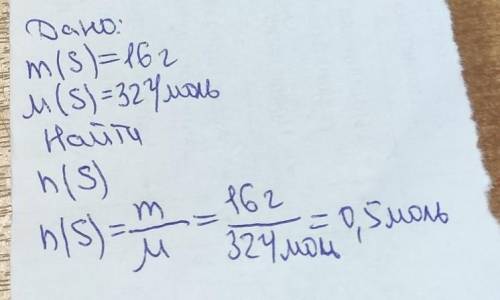 Дано:
m(S)=16г
μ(S)=32г/моль
Найти
n(S)
n(S)=m/μ=16г/32г/моль=0,5моль